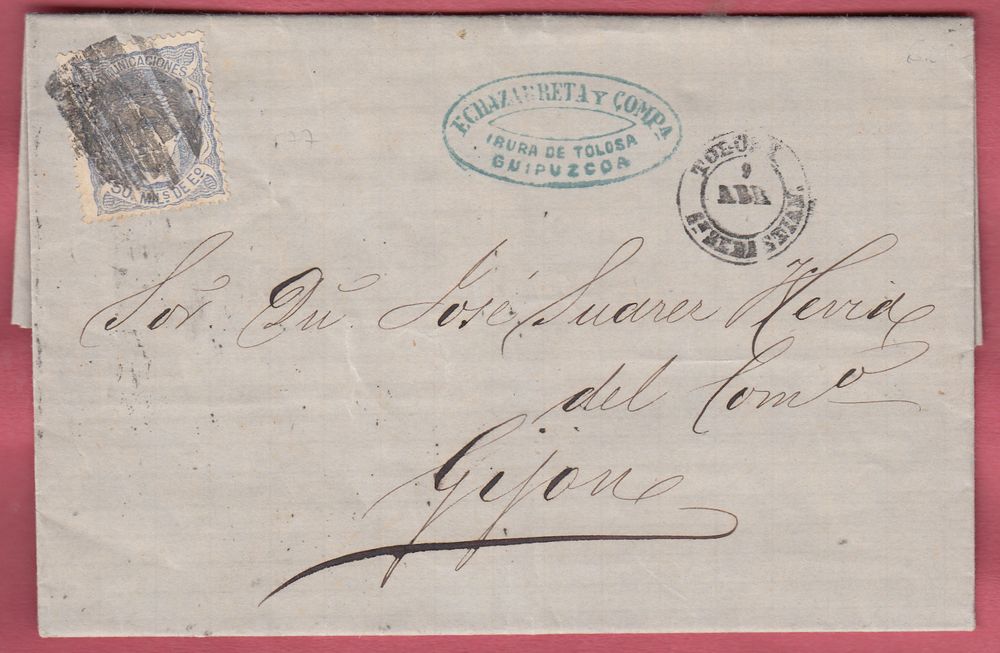 COMUNICACIONES
50 MILS DE Eº
ECHAZARRETA Y COMPA
IBURA DE TOLOSA
GUIPUZCOA
TOLOSA
9
ABR
77
Sor. Dn. José Suarez Hevia
del Comº
Gijon